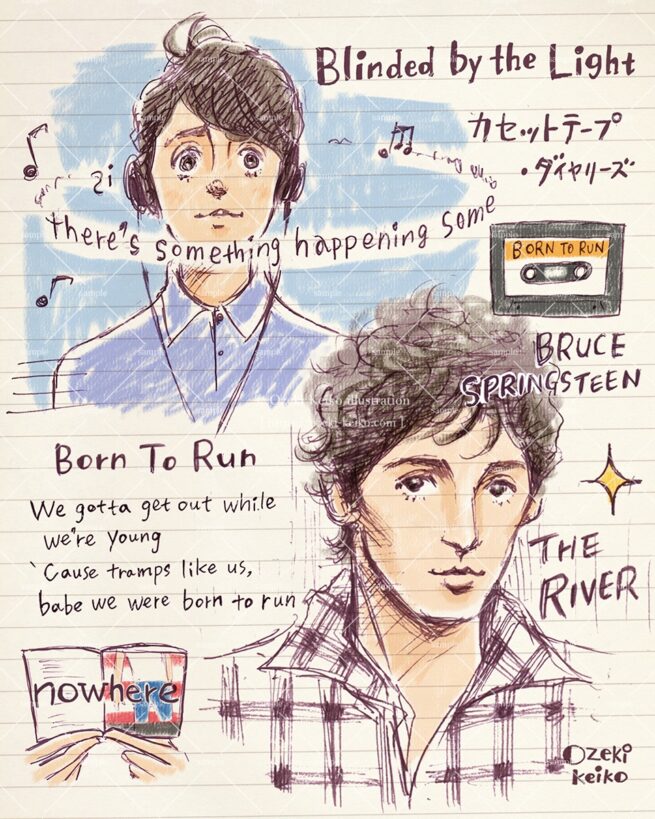 Blinded by the Light
カセットテープ
・ダイヤリーズ
there's something happening some
BORN TO RUN
BRUCE
SPRINGSTEEN
Ozeki Keiko illustration
Born To Run
We gotta get out while
we're young
'Cause tramps like us,
babe we were born to run
THE
RIVER
nowhere
Ozeki
Keiko